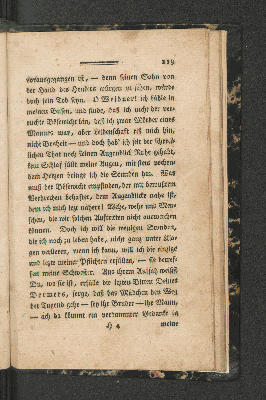 219
vorausgegangen ist, — denn seinen Sohn von
der Hand des Henkers würgen zu sehen, würde
doch sein Tod seyn. O Weldner! ich fühle in
meinem Busen, und finde, daß ich nicht der ver-
ruchte Bösewicht bin, daß ich zwar Mörder eines
Mannes war, aber Leidenschaft riß mich hin,
nicht Bosheit — und doch hab' ich seit der schreck-
lichen That noch keinen Augenblick Ruhe gehabt,
kein Schlaf füllt meine Augen, mit stets wochen-
dem Herzen bringe ich die Stunden hin. Was
muß der Bösewicht empfinden, der mit bewußtem
Verbrechen behaftet, dem Augenblicke nahe ist,
dem ich mich jetzt nähere! Wehe, wehe uns Men-
schen, die wir solchen Auftritten nicht ausweichen
können. Doch ich will die wenigen Stunden,
die ich noch zu leben habe, nicht ganz unter Kla-
gen verlieren, wenn ich kann, will ich die einzige
und letzte meiner Pflichten erfüllen, — sie betref-
fen meine Schwester. Aus ihrem Aufsatz weißt
Du, wo sie ist, erfülle die letzten Bitten Deines
Dermers, sorge, daß das Mädchen den Weg
der Tugend gehe — sey ihr Bruder — ihr Mann,
— ach da kömmt ein verdammter Gedanke in
meine